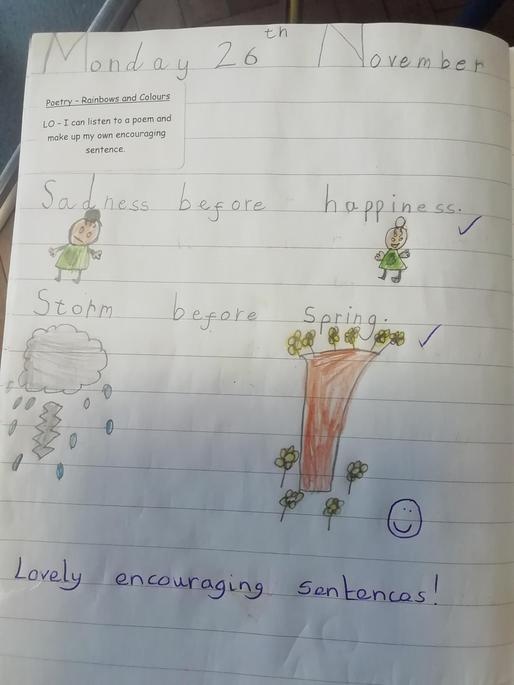 Monday 26th November
Poetry - Rainbows and Colours
LO - I can listen to a poem and
make up my own encouraging
sentence.
Sadness before happiness.
Storm before spring.
Lovely encouraging sentences!